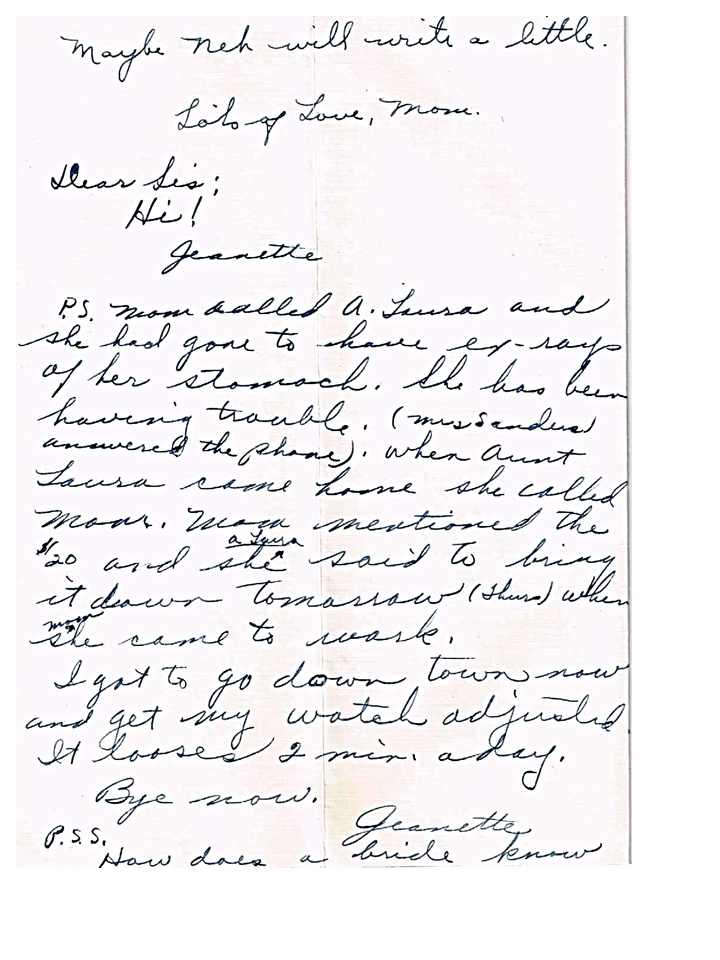 Maybe Neh will write a little.
Lots of Love, Mom.
Dear Sis;
Hi!
Jeanette
P.S. Mom called A. Laura and
she had gone to have ex-rays
of her stomach. She has been
having trouble. (Mrs Sanders
answered the phone). When Aunt
Laura came home she called
Mom. Mom mentioned the
a Laura
$20 and she said to bring
it down tomorrow (Thurs) when
mom
she came to work.
I got to go down town now
and get my watch adjusted
It looses 2 min. a day.
Bye now.
Jeanette
P.S.S.
How does a bride know